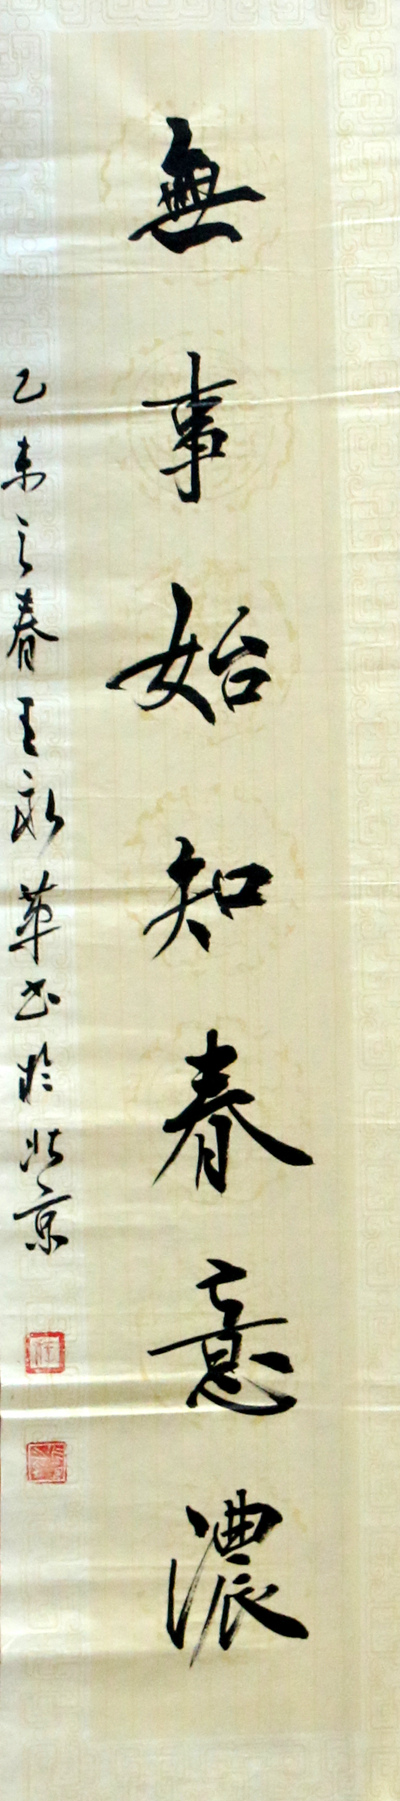 無事始知春意濃
乙未之春王永革书於北京